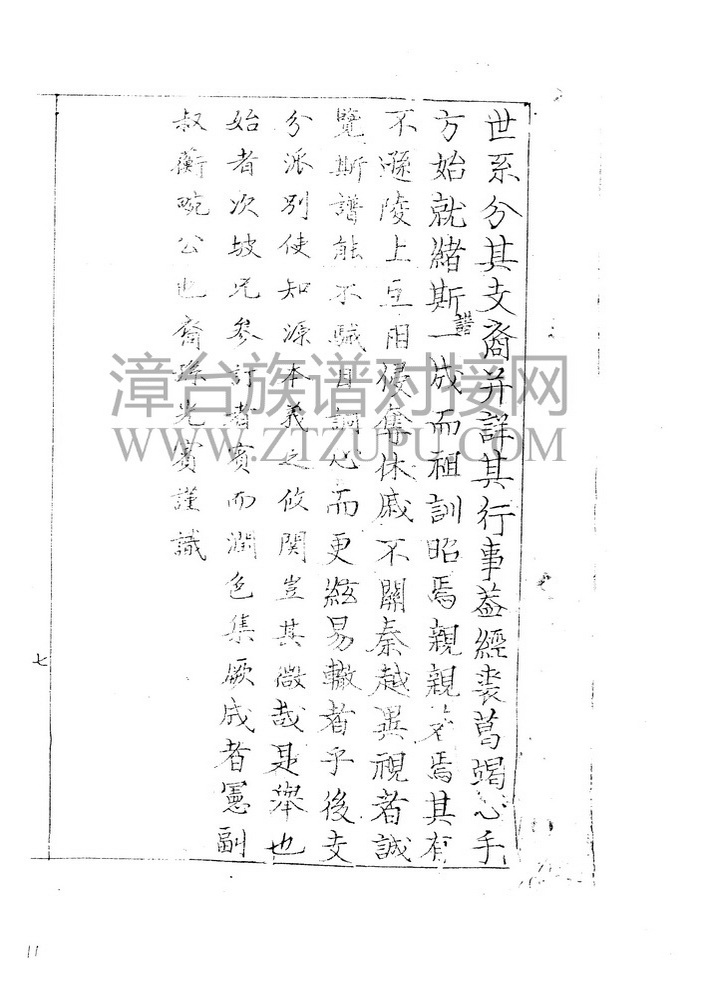 世系分其支裔并詳其行事葢經裘葛竭心手
方始就緒斯譜一成而祖訓昭焉親親焉其有
不遜陵上豆相侵奪休戚不關秦越異視者誠
覽斯譜能不駴目訓心而更絃易轍者乎後支
分派別使知源本義之攸関豈其微哉是舉也
始者次坡兄參訂者賓而潤色集厥成者憲副
叔蘅畹公也裔孫光賓謹識
七
11
漳台族谱对接网
WWW.ZTZUPU.COM